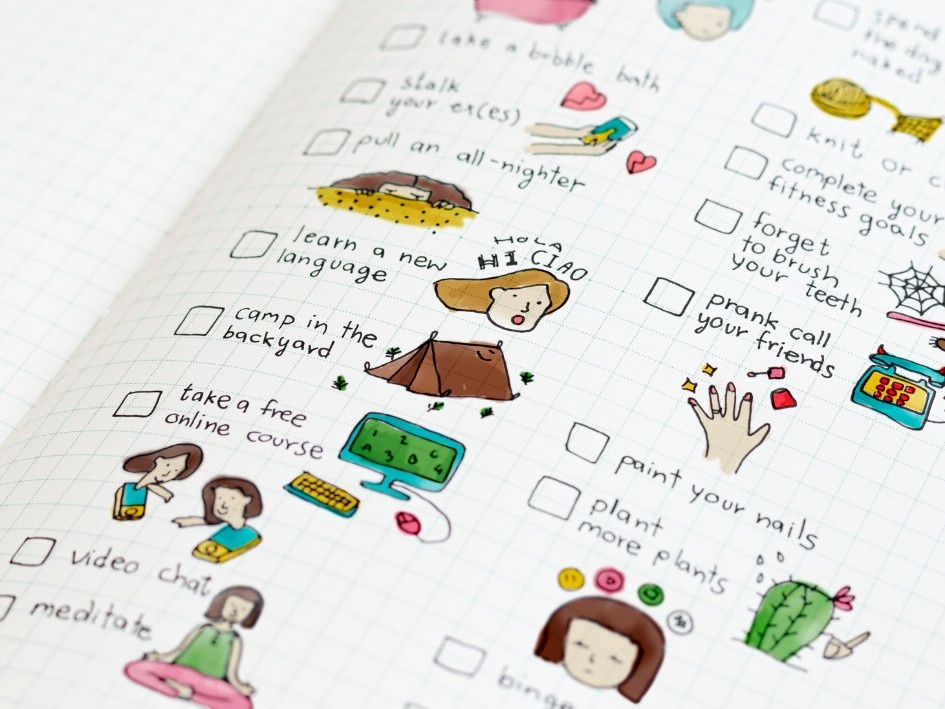 take a bubble bath
stalk
your ex(es)
pull an all-nighter
learn a new
language
HOLA
HI CIAO
camp in the
backyard
take a free
online course
1 2 C
A 3 D 4
video chat
meditate
spend
the day
naked
knit or
complete your
fitness goals
forget
to brush
your teeth
prank call
your friends
paint your nails
plant
more plants
binge